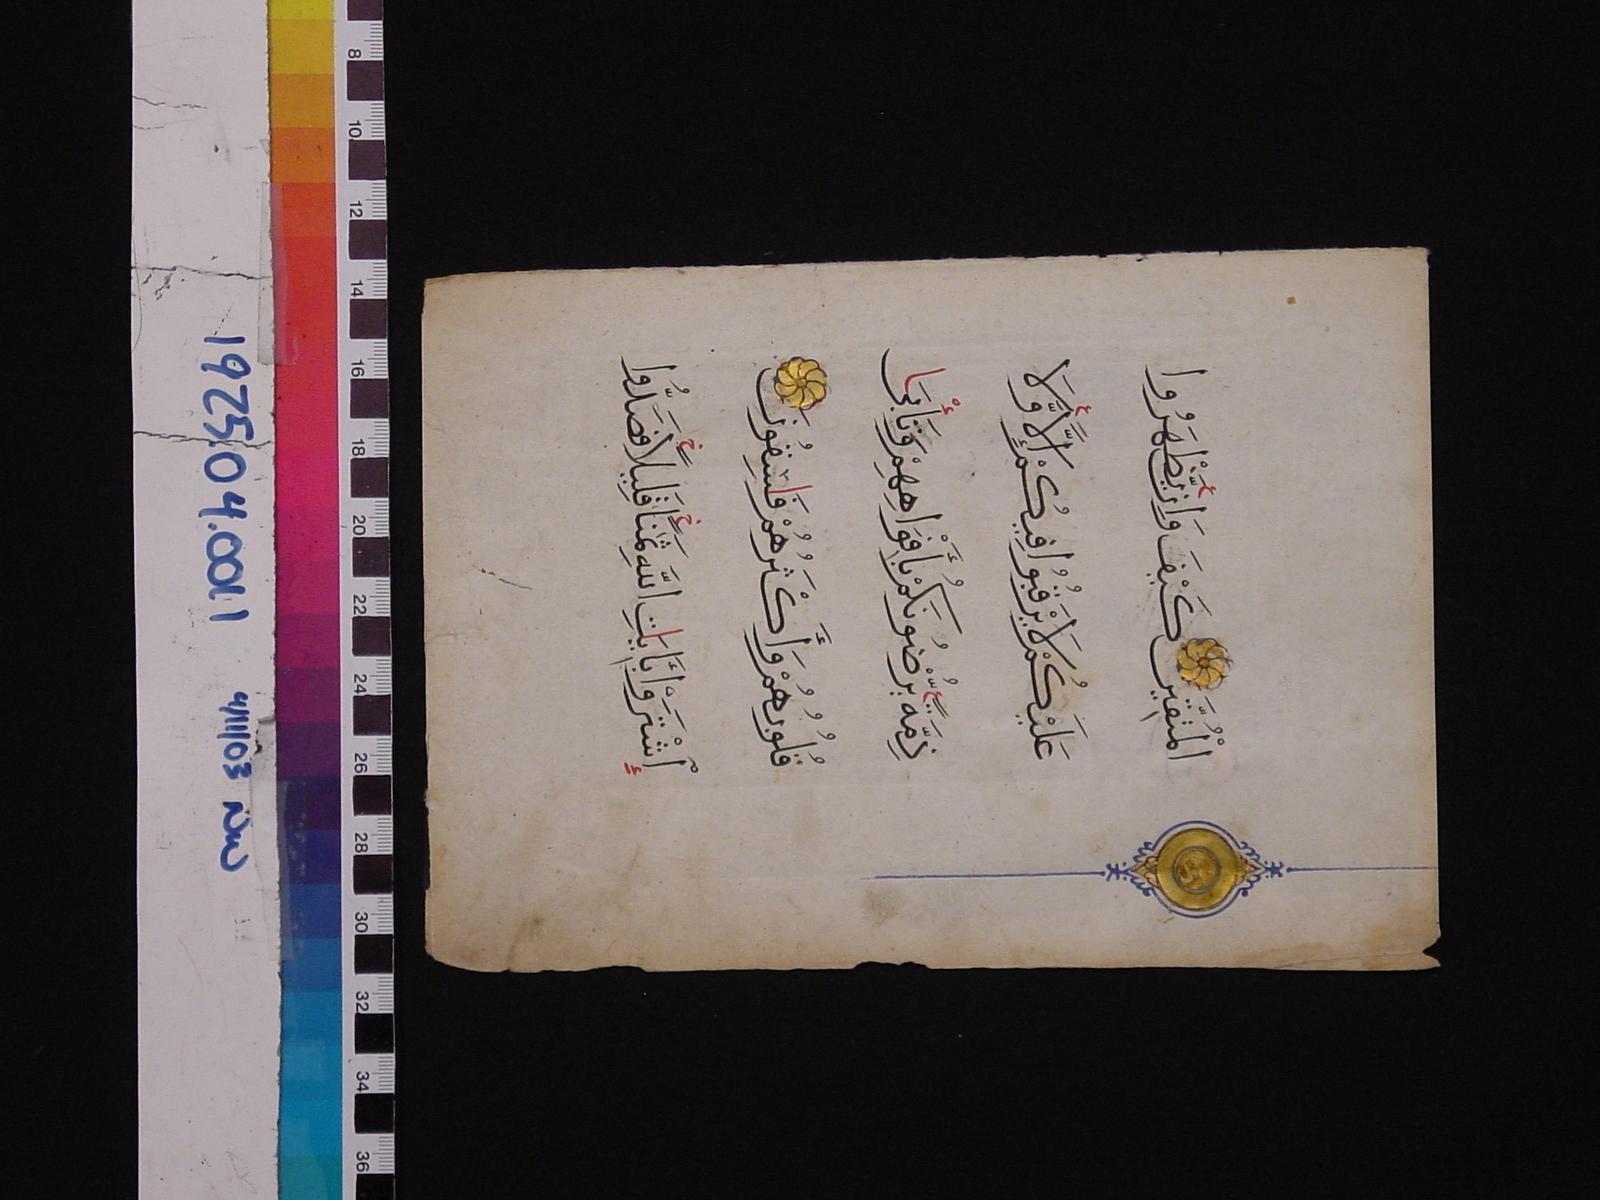 الْمُتَّقِينَ كَيْفَ وَإِنْ يَظْهَرُوا
عَلَيْكُمْ لَا يَرْقُبُوا فِيكُمْ إِلًّا وَّلَا
ذِمَّةً يُرْضُونَكُمْ بِأَفْوَاهِهِمْ وَتَأْبَىٰ
قُلُوبُهُمْ وَأَكْثَرُهُمْ فَٰسِقُونَ
ٱشْتَرَوْا بِـَٔايَٰتِ اللَّهِ ثَمَنًا قَلِيلًا فَصَدُّوا
4/11/03
8 10 12 14 16 18 20 22 24 26 28 30 32 34 36